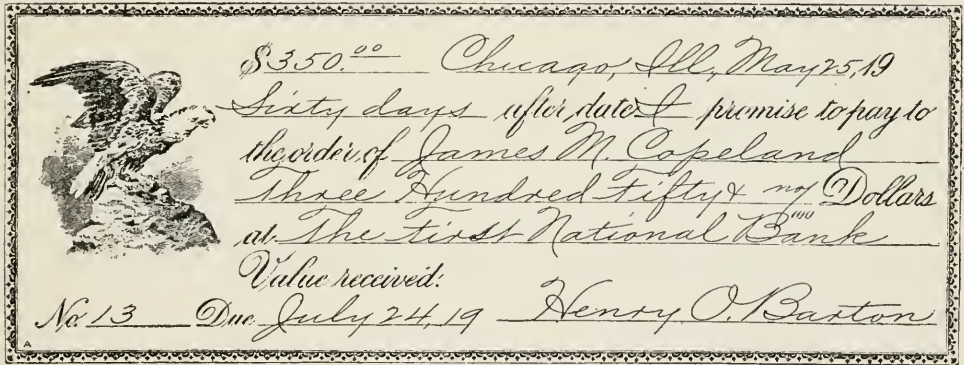 $350.00 Chicago, Ill., May 25, 19
Sixty days after date I promise to pay to
the order of James M. Copeland
Three Hundred Fifty & no/100 Dollars
at The First National Bank
Value received.
No. 13 Due July 24, 19 Henry O. Barton
A